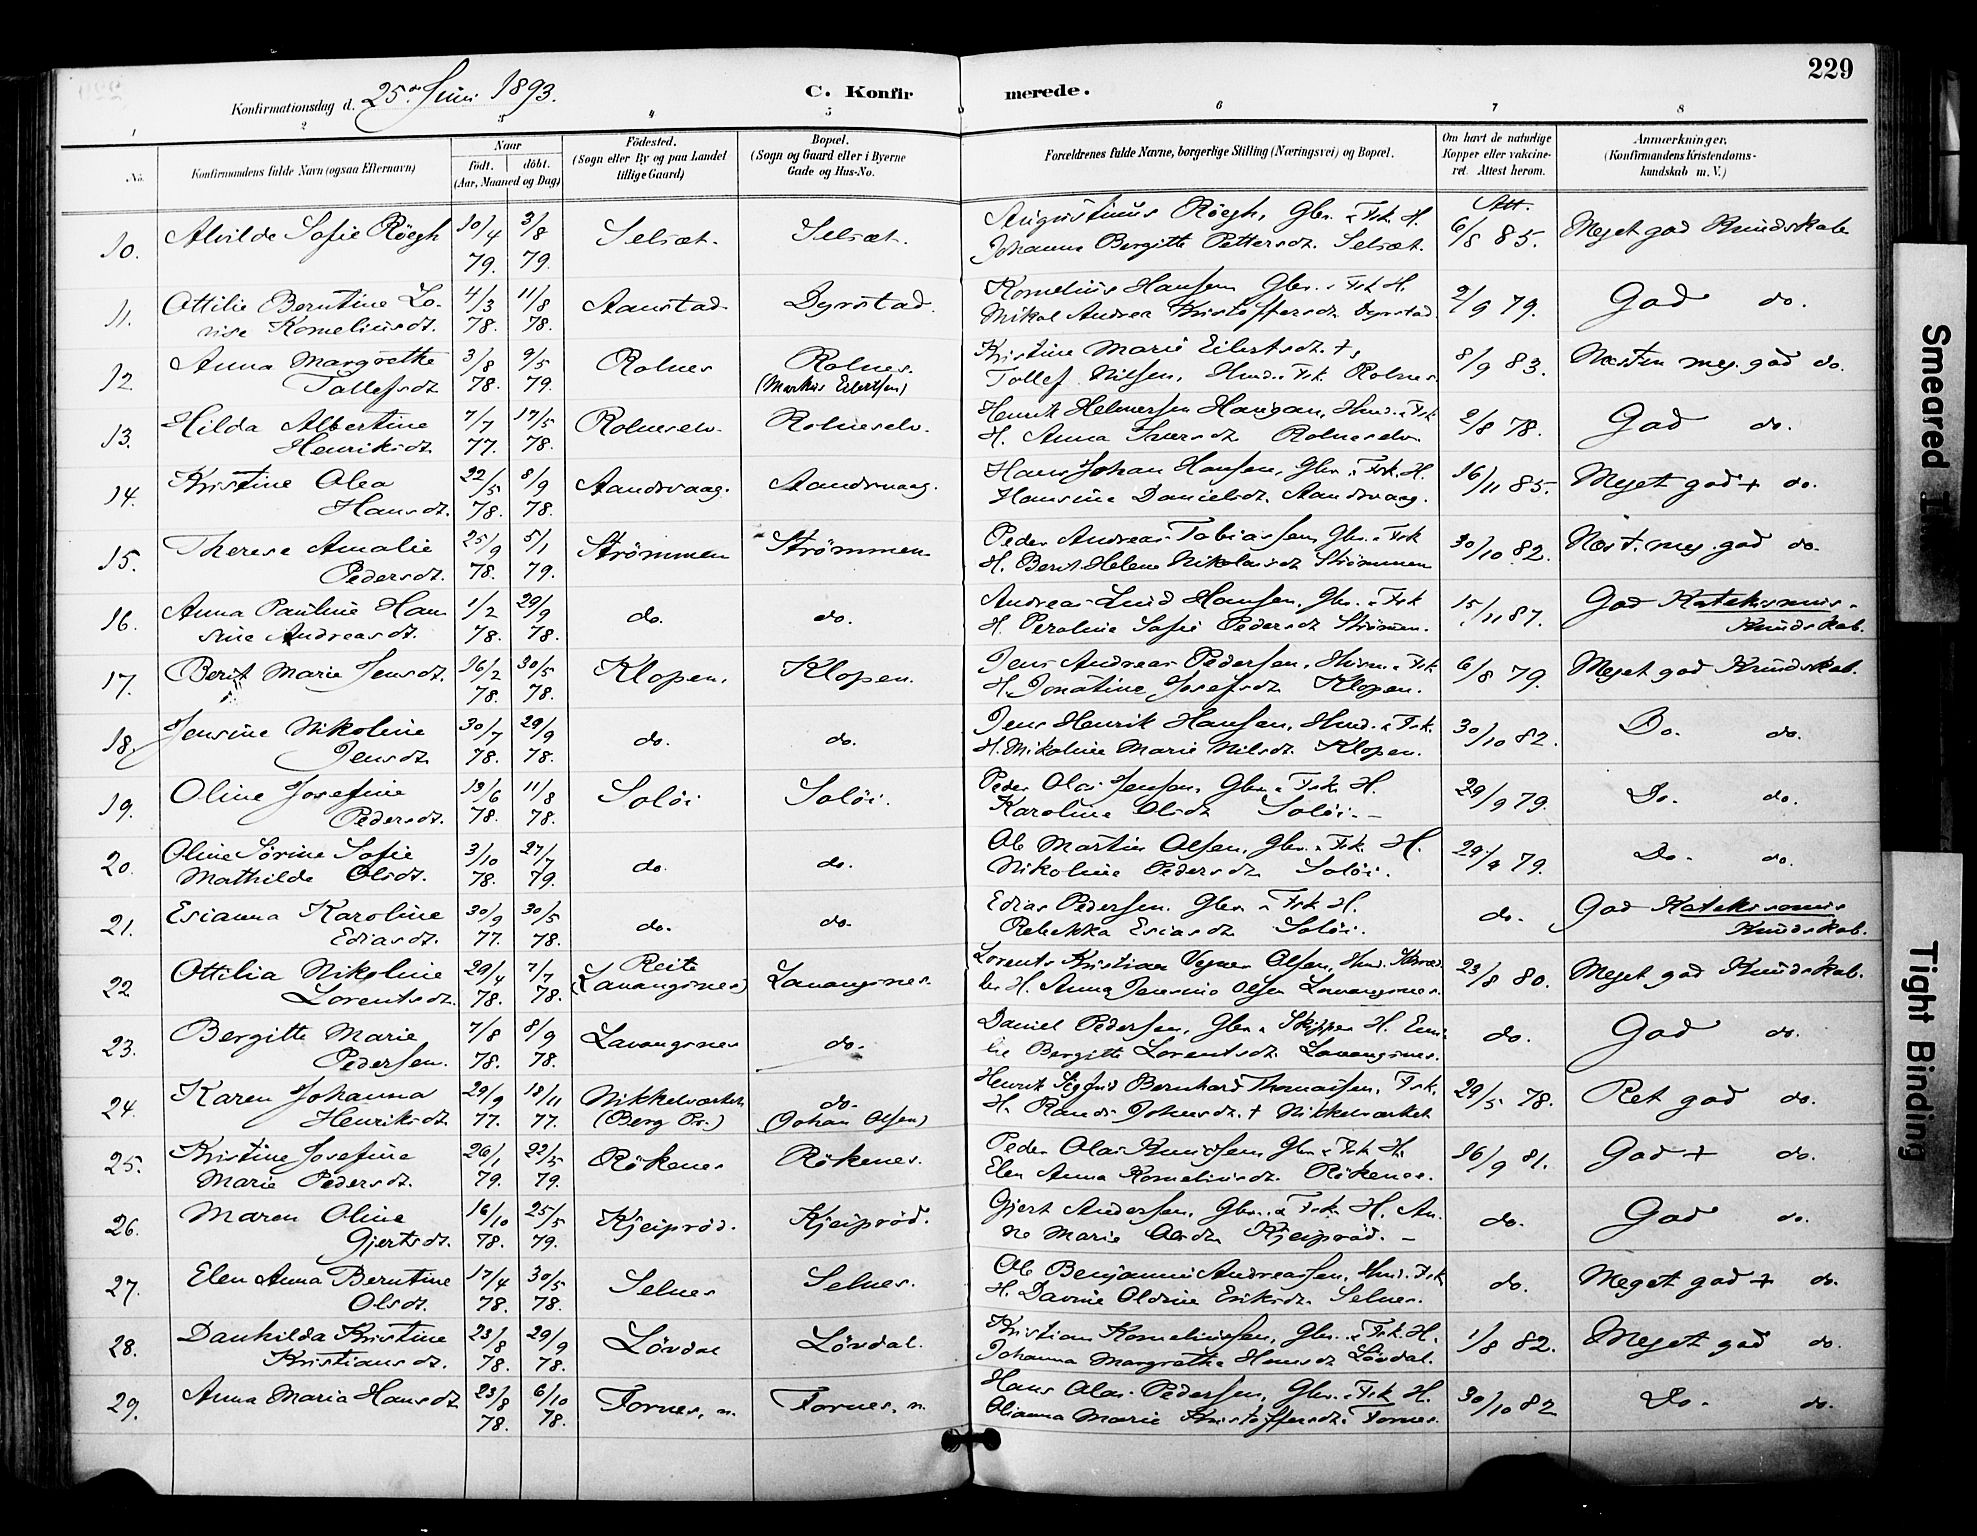 229
Konfirmationsdag d. 25de Juni 1893.
C. Konfirmerede.
1 2 3 4 5 6 7 8
No.
Konfirmandens fulde Navn (ogsaa Efternavn)
Naar
født. døbt.
(Aar, Maaned og Dag)
Fødested.
(Sogn eller By og paa Landet
tillige Gaard)
Bopæl.
(Sogn og Gaard eller i Byerne
Gade og Hus-No.
Forældrenes fulde Navne, borgerlige Stilling (Næringsvei) og Bopæl.
Om havt de naturlige
Kopper eller vakcine-
ret. Attest herom.
Anmærkninger,
(Konfirmandens Kristendoms-
kundskab m. V.)
10. Alvilde Sofie Röegh 10/4 79. 3/8 79. Selsæt. Selsæt. Augustinus Röegh, Gbr. & Fsk. H.
Johanna Bergitte Pettersdt. Selsæt. Att. 6/8 85. Meget god Kundskab
11. Ottilie Berntine Lo-
vise Korneliusdt. 4/3 78. 11/8 78. Aanstad. Dyrstad. Kornelius Hansen Gbr. & Fsk H.
Nikol. Andrea Kristoffersdt. Dyrstad 2/9 79. God do.
12. Anna Margrethe
Tollefsdt 3/8 78. 9/5 79. Rolnes Rolnes.
(Markus Eilertsen) Kristine Marie Eilertsdt. +,
Tollef Nilsen, Hmd. & Fsk. Rolnes 8/9 83. Næsten meg. god do.
13. Hilda Albertine
Henriksdt. 7/7 77. 17/5 78. Rolneselv. Rolneselv. Henrik Helmersen Haugan, Hmd. & Fsk
H. Anna Iversdt Rolneselv 2/8 78. God do.
14. Kristine Olea
Hansdt. 22/5 78. 8/9 78. Aandervaag. Aandervaag. Hans Johan Hansen, Gbr. & Fsk. H.
Hansine Danielsdt. Aandervaag. 16/11 85. Meget god + do.
15. Therese Amalie
Pedersdt. 25/9 78. 5/1 79. Strömmen Strömmen Peder Andreas Tobiassen, Gbr. & Fsk
H. Berit Helene Nikolaisdt Strömmen 30/10 82. Næst. meg. god do.
16. Anna Pauline Han-
sine Andreasdt. 1/2 78. 29/9 78. do. do. Andreas Lind Hansen, Gbr. & Fsk
H. Peroline Sofie Pedersdt Strömmen. 15/11 87. God Katekismus-
Kundskab.
17. Berit Marie Jensdt. 16/2 78. 30/5 78. Klopen. Klopen. Jens Andreas Pedersen, Husm. & Fsk
H. Jonatine Josefsdt Klopen. 6/8 79. Meget god Kundskab.
18. Jensine Nikoline
Jensdt. 30/7 78. 29/9 78. do. do. Jens Henrik Hansen, Hmd. & Fsk.
H. Nikoline Marie Nilsdt. Klopen. 30/10 82. Do. do.
19. Oline Josefine
Pedersdt. 13/6 78. 11/8 78. Solöi Solöi. Peder Olai Jensen, Gbr. & Fsk. H.
Karoline Olsdt Solöi. - 29/9 79. Do. do.
20. Oline Sörine Sofie
Mathilde Olsdt. 3/10 78. 27/7 79. do. do. Ole Martin Olsen, Gbr. & Fsk. H.
Nikoline Pedersdt Solöi. 29/9 79. Do. do.
21. Esianna Karoline
Ediasdt. 30/9 77. 30/5 78. do. do. Edias Pedersen Gbr. & Fsk H.
Rebekka Esiasdt Solöi. do. God Katekismus
Kundskab.
22 Ottilia Nikoline
Lorentsdt. 29/4 78. 7/7 78. Reite
(Lavangsnes) Lavangsnes. Lorents Kristian Vegner Olsen, Hmd. Skræd-
der H. Anna Jensine Olsen Lavangsnes. 23/8 80. Meget god Kundskab.
23. Bergitte Marie
Pedersen. 7/8 78. 8/9 78. Lavangsnes do. Daniel Pedersen, Gbr. & Skipper H. Emi-
lie Bergitte Lorentsdt. Lavangsnes. do. God do.
24. Karen Johanna
Henriksdt 29/9 77. 18/11 77. Nikkelværket
(Berg Pr.) do.
(Johan Olsen) Henrik Sigfrid Bernhard Thomassen, Fsk.
H. Randi Johnsdt. + Nikkelværket 29/5 78. Ret god do.
25. Kristine Josefine
Marie Pedersdt. 26/1 79. 22/5 79. Rökenes Rökenes. Peder Olai Knudsen, Gbr. & Fsk H.
Elen Anna Korneliusdt. Rökenes. 16/9 81. God + do.
26. Maren Oline
Gjertsdt. 16/10 78. 25/5 79. Kjeiprød. Kjeiprød. Gjert Andersen, Gbr. & Fsk H. An-
ne Marie Olsdt Kjeiprød. - do. God do.
27. Elen Anna Berntine
Olsdt. 17/4 78. 30/5 78. Selnes Selnes. Ole Benjamin Andreassen, Hmd. Fsk
H. Davine Oldine Eriksdt. Selnes. do. Meget god + do.
28. Danhilda Kristine
Kristiansdt. 23/8 78. 29/9 78. Lövdal Lövdal. Kristian Korneliussen, Gbr. & Fsk. H.
Johanna Margrethe Hansdt Lövdal. 1/8 82. Meget god do.
29. Anna Maria Hansdt 23/8 78. 6/10 78. Fornes, n. Fornes, n. Hans Olai Pedersen, Gbr. & Fsk H.
Olianna Marie Kristoffersdt. Fornes. 30/10 82 Do. do.
Smeared
Tight Binding